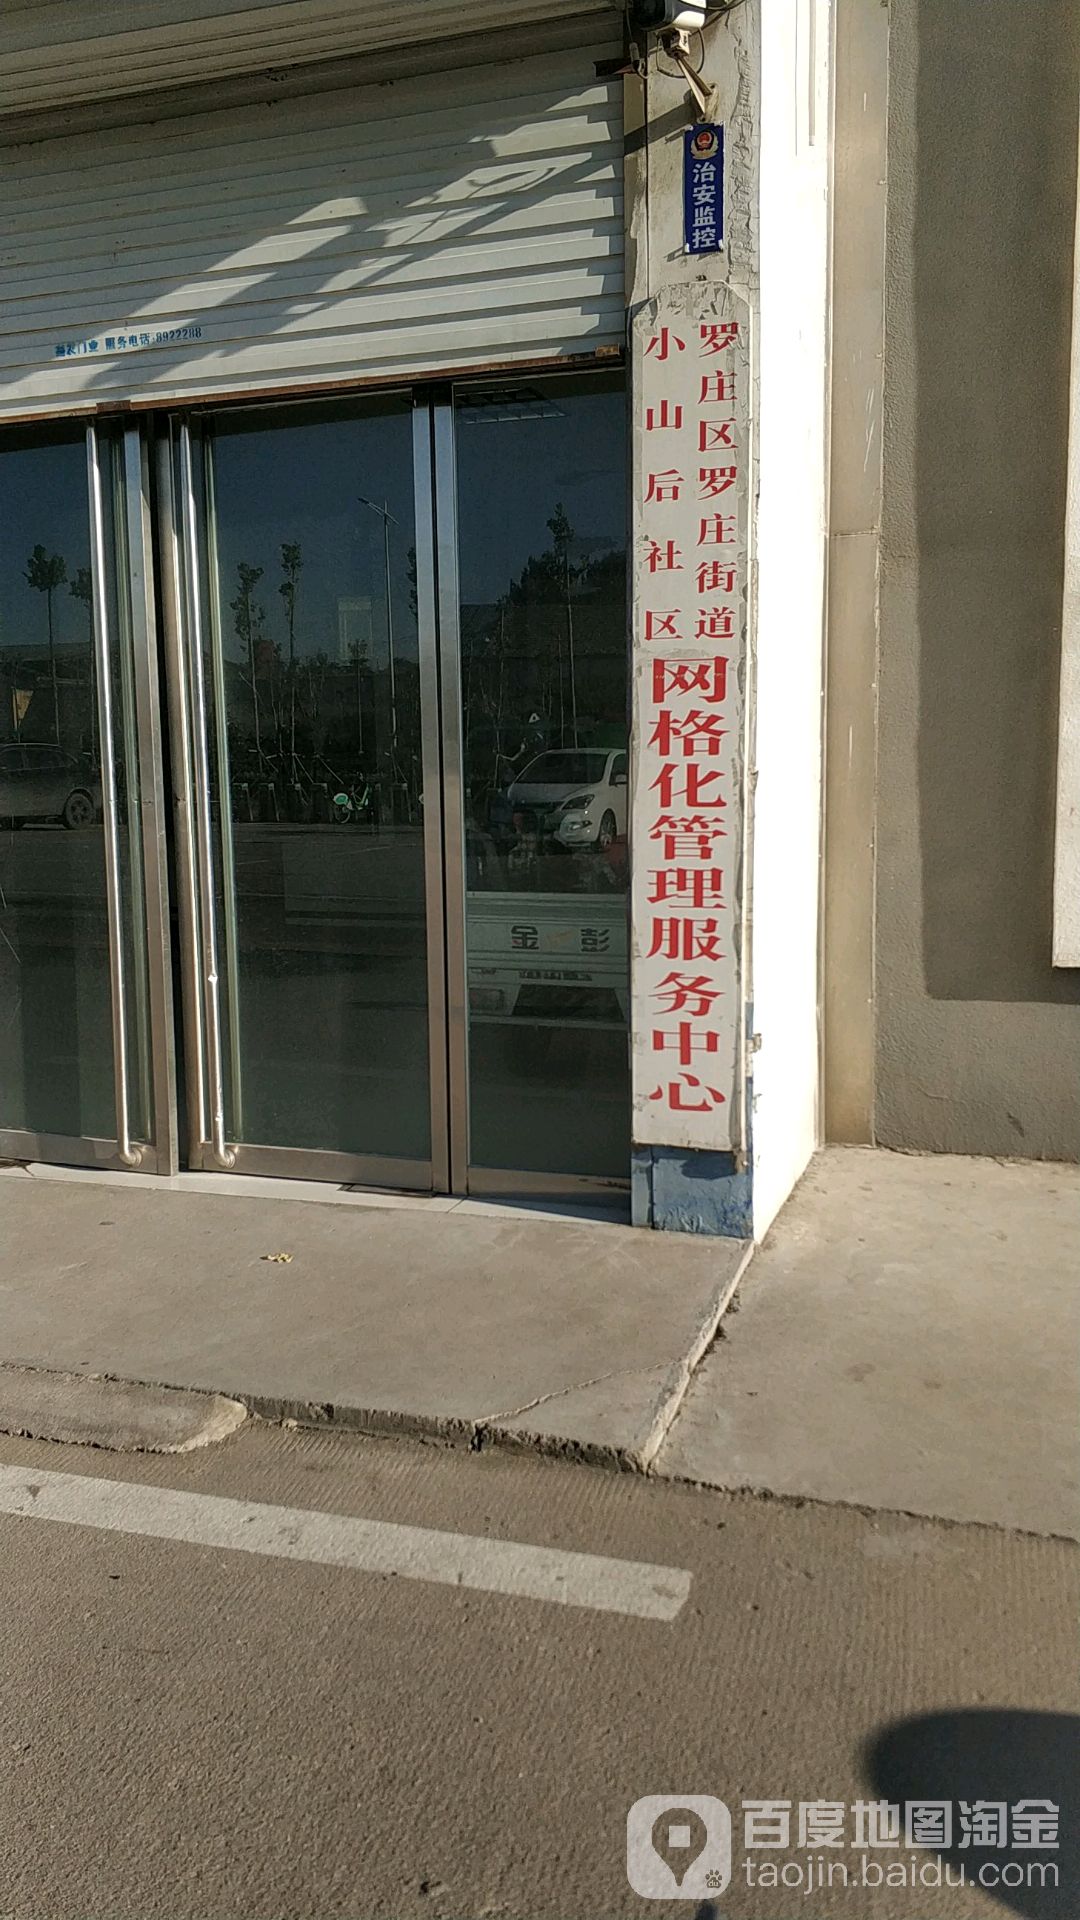 治安监控
门业 服务电话:8922288
罗庄区罗庄街道
小山后社区
网格化管理服务中心
金彭
百度地图淘金
taojin.baidu.com